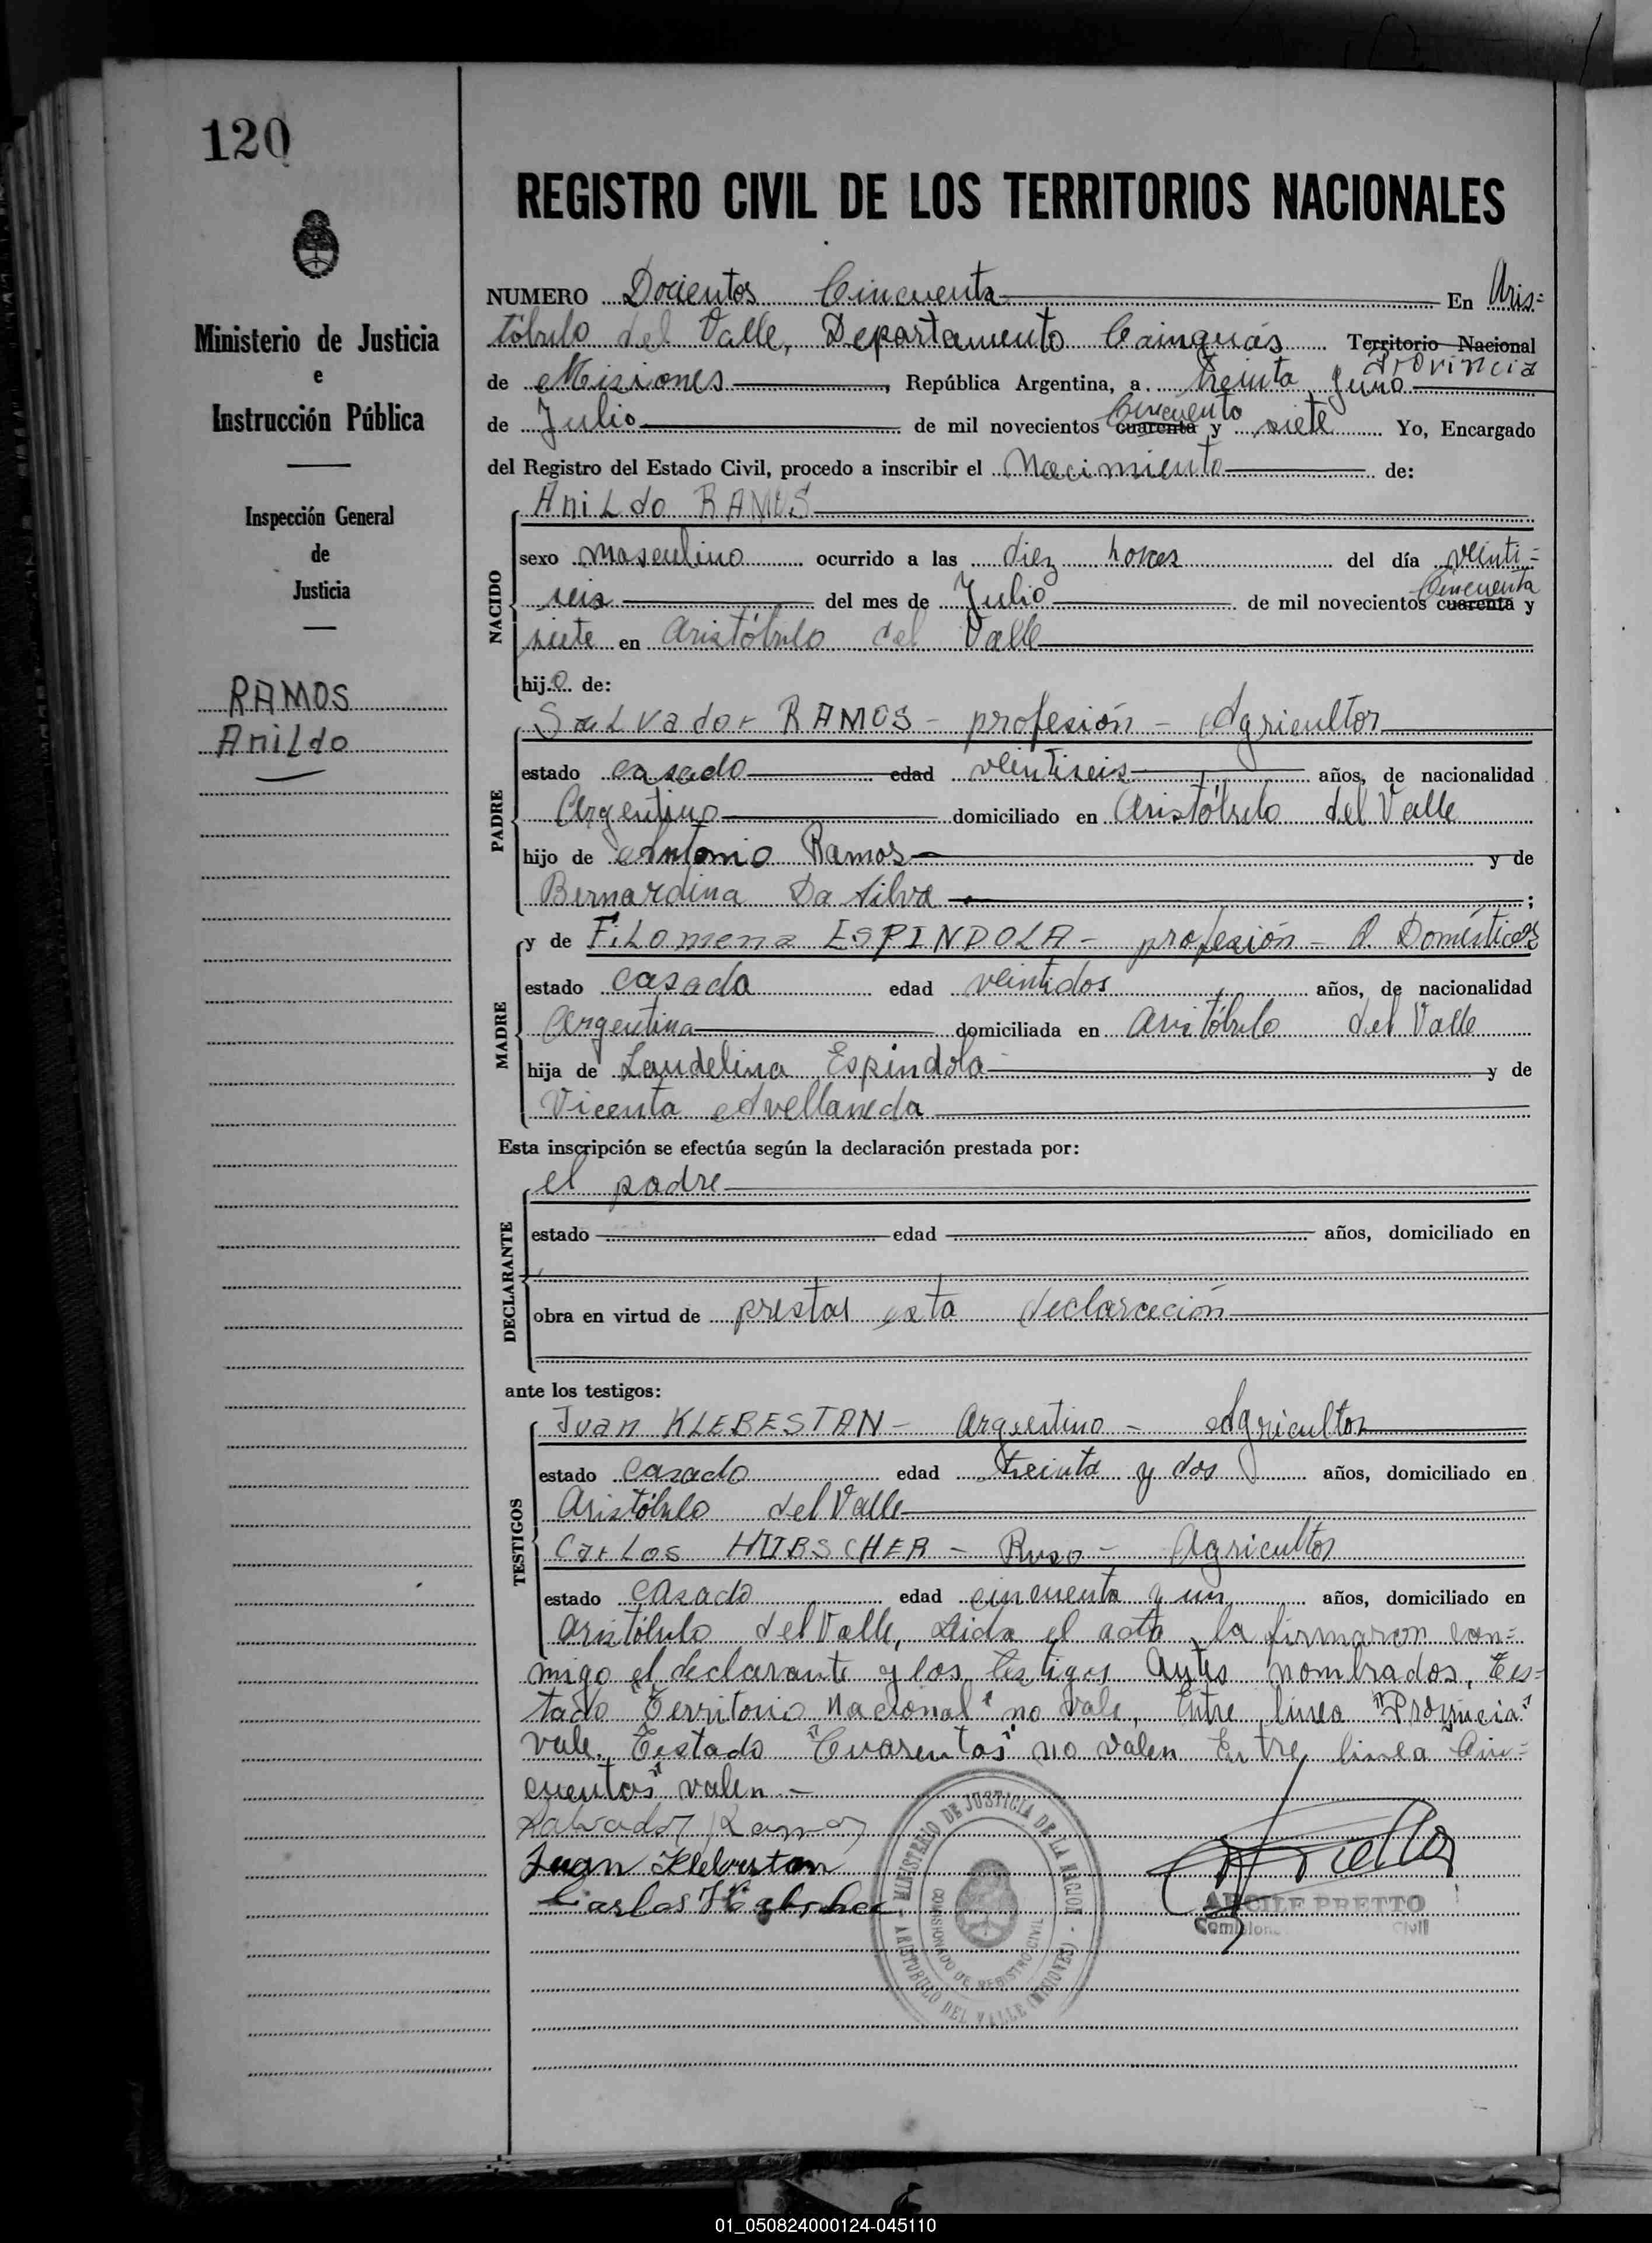 120
Ministerio de Justicia
e
Instrucción Pública
Inspección General
de
Justicia
RAMOS
Anildo
REGISTRO CIVIL DE LOS TERRITORIOS NACIONALES
NUMERO Docientos Cincuenta En Aris=
tóbulo del Valle, Departamento Cainguás Territorio Nacional
Provincia
de Misiones, República Argentina, a treinta y uno
Cincuenta
de Julio de mil novecientos cuarenta y siete Yo, Encargado
del Registro del Estado Civil, procedo a inscribir el Nacimiento de:
NACIDO
Anildo RAMOS
sexo masculino ocurrido a las diez horas del día veinti=
Cincuenta
seis del mes de Julio de mil novecientos cuarenta y
siete en Aristóbulo del Valle
hijo de:
PADRE
Salvador RAMOS - profesión - Agricultor
estado casado edad veintiseis años, de nacionalidad
Argentino domiciliado en Aristóbulo del Valle
hijo de Antonio Ramos y de
Bernardina Da Silva ;
MADRE
y de Filomena ESPINDOLA - profesión - Q. Domésticos
estado casada edad veintidos años, de nacionalidad
Argentina domiciliada en Aristóbulo del Valle
hija de Laudelina Espíndola y de
Vicenta Avellaneda
Esta inscripción se efectúa según la declaración prestada por:
DECLARANTE
el padre
estado edad años, domiciliado en
obra en virtud de prestar esta declaración
ante los testigos:
TESTIGOS
Juan KLEBESTAN - Argentino - Agricultor
estado Casado edad treinta y dos años, domiciliado en
Aristóbulo del Valle
Carlos HUBSCHER - Ruso - Agricultor
estado casado edad cincuenta y un años, domiciliado en
Aristóbulo del Valle, Leida el acta la firmaron con=
migo el declarante y los testigos antes nombrados, Tes=
tado "Territorio Nacional" no vale, Entre linea "Provincia"
vale. Testado "Cuarentas" no valen Entre linea Cin=
cuentas" valen.-
Salvador Ramos
Juan Klebestan
Carlos Hubscher
MINISTERIO DE JUSTICIA DE LA NACION
COMISIONADO DE REGISTRO CIVIL
ARISTOBULO DEL VALLE (MISIONES)
ARCILE PRETTO
Civil
01_050824000124-045110